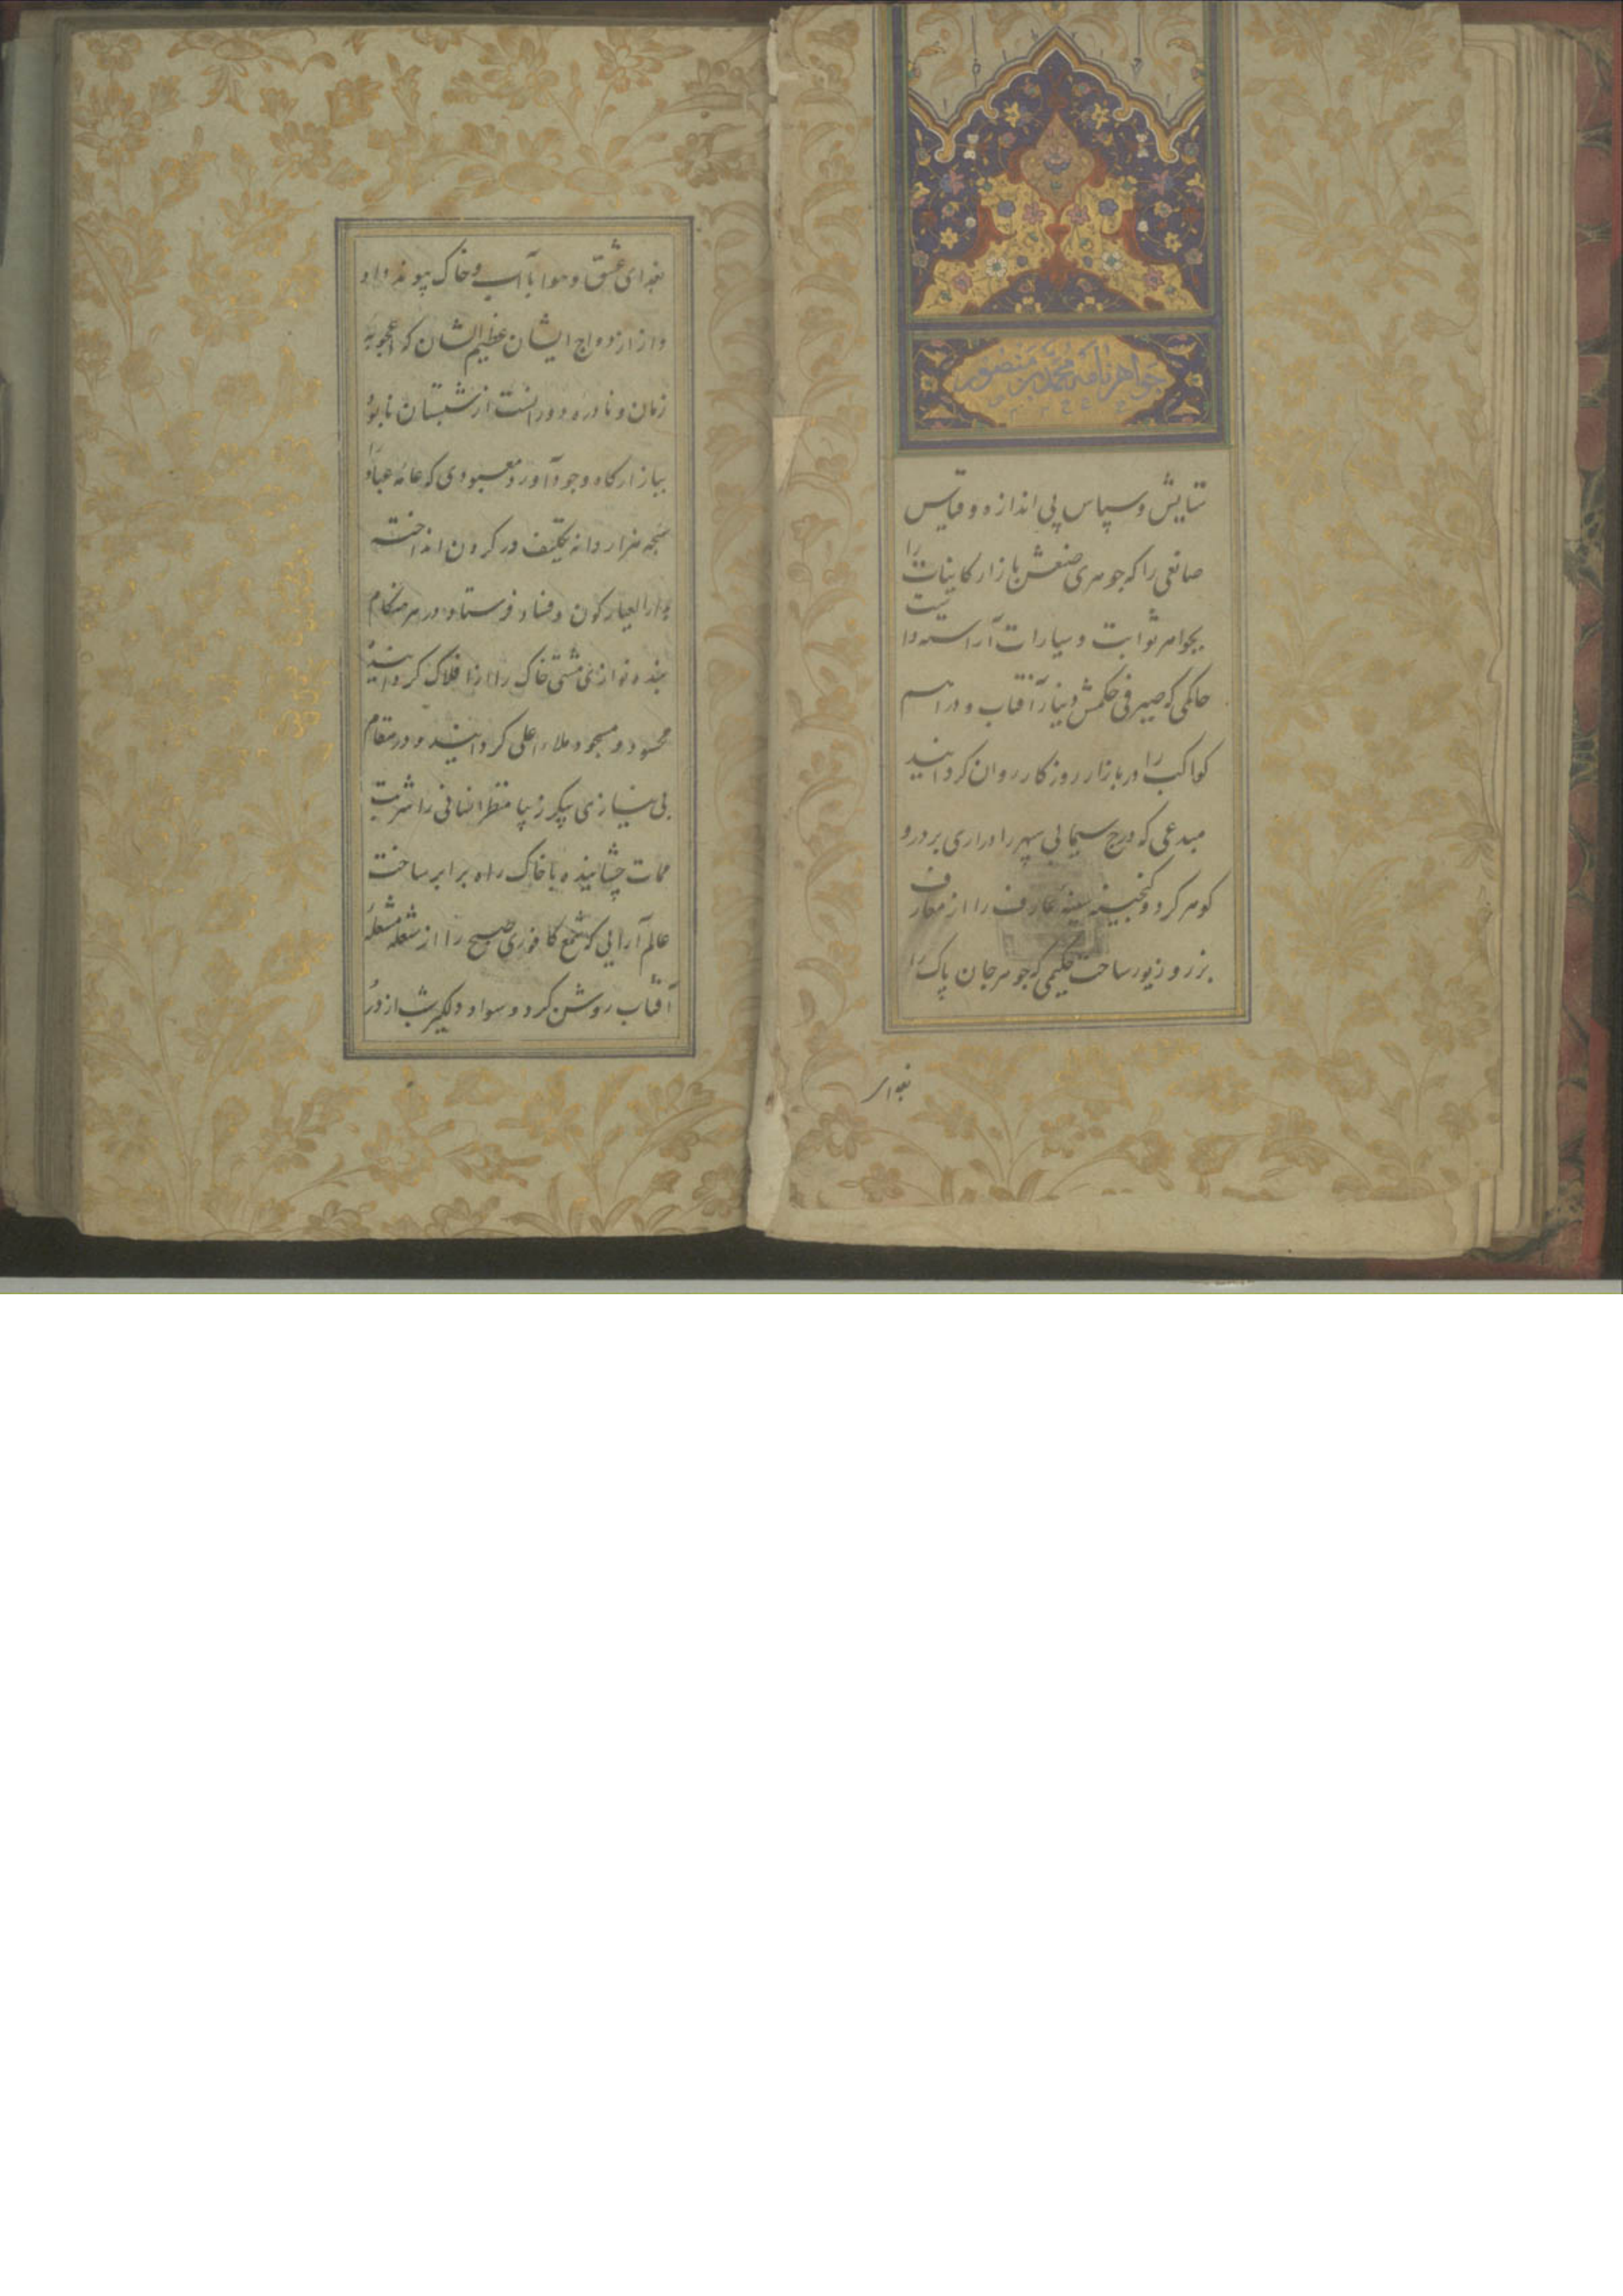 جواهرنامه محمد بن منصور
ستایش و سپاس بی اندازه و قیاس
صانعی را که جوهری صنعش بازار کاینات را
بجواهر ثوابت و سیارات آراسته
حاکمی که صیرفی حکمش دینار آفتاب و دراهم
کواکب را در بازار روزکار روان کردانید
مبدعی که درج سیمابی سپهر را دراری پر درو
کوهر کرد و کنجینه سینه عارف را از معارف
بزر و زیور ساخت حکیمی که جوهر جان پاک را
بفدای
بفدای عشق و هوا با آب و خاک پیوند داد
و از ازدواج ایشان عظیم الشان که اعجوبه
زمان و نادره دورانست از شبستان نابود
ببازارکاه وجود آورد معبودی که عامه عباد را
سبحه هزار دانه تکلیف در کردن انداخته
بدارالعیار کون و فساد فرستاد و در هر هنکام
بنده نوازی مشتی خاک را از افلاک کردانید
محسود و مسجود ملاء اعلی کردانید و در مقام
بی نیازی پیکر زیبا منظر انسانی را شربت
ممات چشانیده با خاک راه برابر ساخت
عالم آرایی که شمع کافوری صبح را از شعله مشعله
آفتاب روشن کرد و سواد دلکیر شب از دور